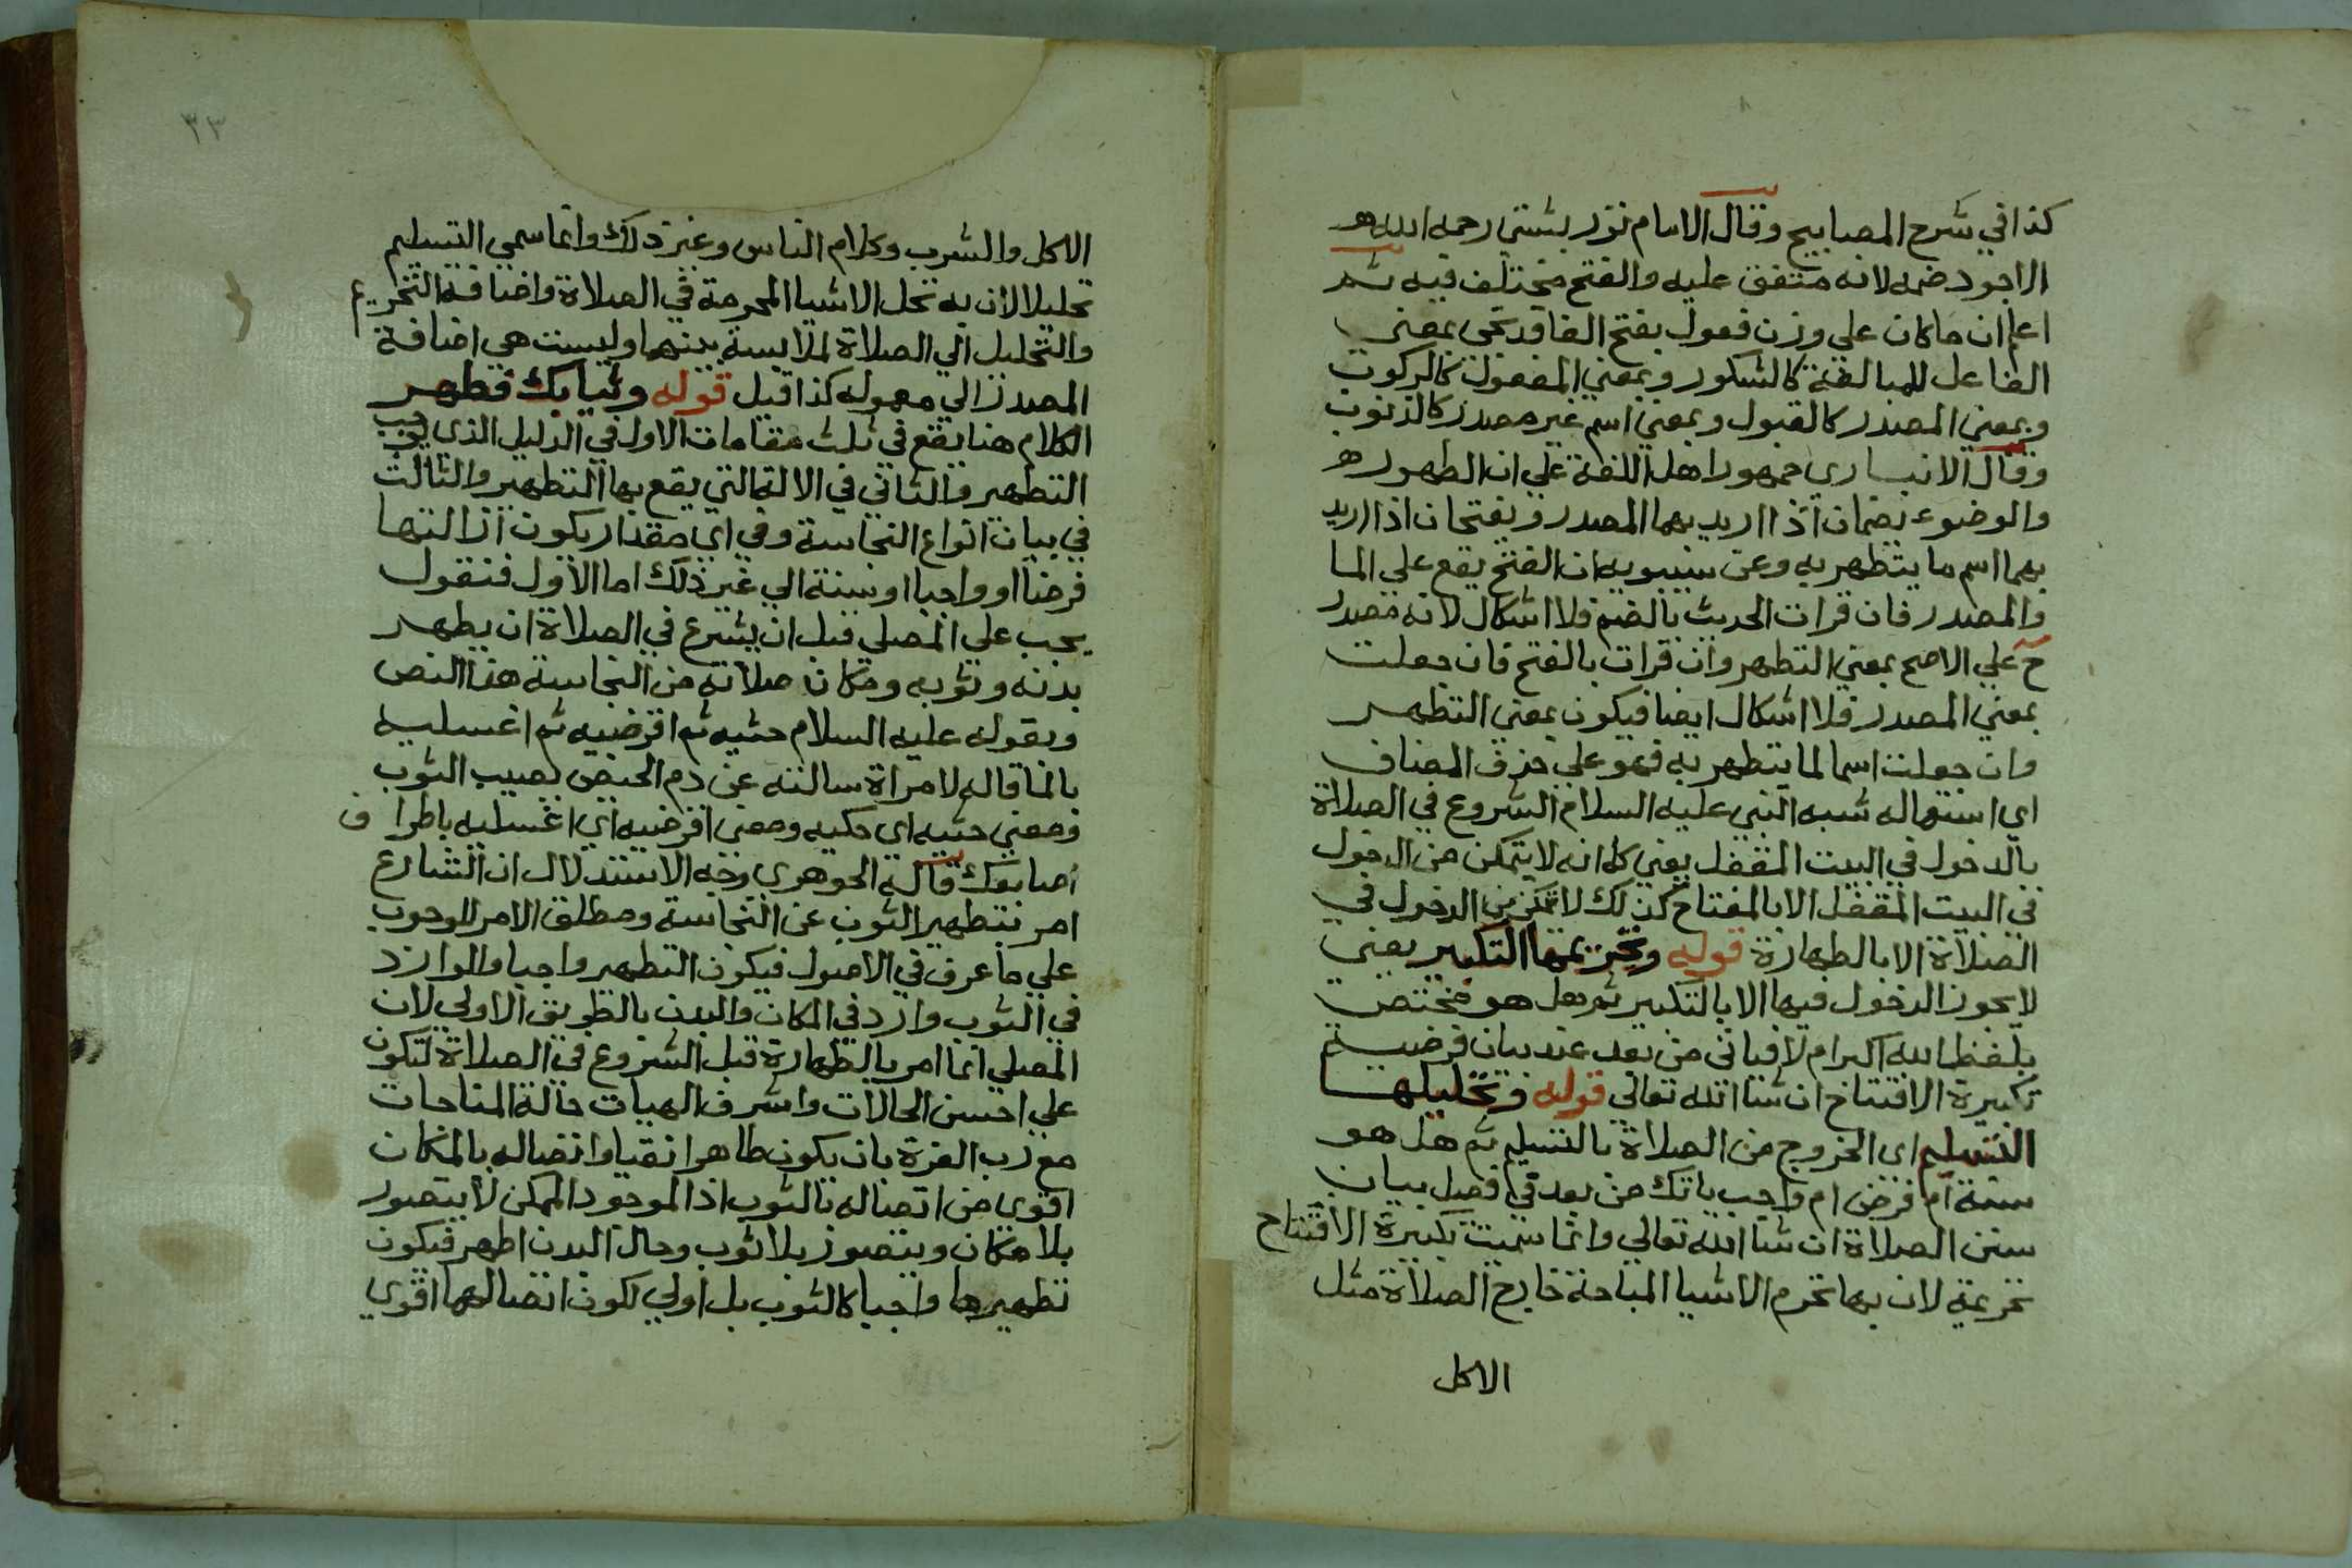 كذا في شرح المصابيح وقال الامام تور بشتي رحمه الله هو
الاجود ضمه لانه متفق عليه والفتح مختلف فيه ثم
اعلم ان ما كان على وزن فعول بفتح الفا قد تجى بمعني
الفاعل للمبالغة كالشكور وبمعني المفعول كالركوب
وبمعني المصدر كالقبول وبمعني اسم غير مصدر كالذنوب
وقال الانباري جمهور اهل اللغة علي ان الطهور
والوضوء يضمان اذا اريد بهما المصدر ويفتحان اذا اريد
بهما اسم ما يتطهر به وعن سيبويه ان الفتح يقع علي الما
والمصدر فان قرات الحديث بالضم فلا اشكال لانه مصدر
ح علي الاصح بمعني التطهر وان قرات بالفتح فان جعلت
بمعني المصدر فلا اشكال ايضا فيكون بمعني التطهر
وان جعلت اسما لما يتطهر به فهو علي حذف المضاف
اي استعماله شبه النبي عليه السلام الشروع في الصلاة
بالدخول في البيت المقفل يعني كما انه لا يتمكن من الدخول
في البيت المقفل الا بالمفتاح كذلك لا تمكن من الدخول في
الصلاة الا بالطهارة قوله وتحريمها التكبير يعني
لا يجوز الدخول فيها الا بالتكبير ثم هل هو مختص
بلفظ الله اكبر ام لا فياتى من بعد عند بيان فرضية
تكبيرة الافتتاح ان شا الله تعالي قوله وتحليلها
التسليم اى الخروج من الصلاة بالتسليم ثم هل هو
سنة ام فرض ام واجب ياتك من بعد في فصل بيان
سنن الصلاة ان شا الله تعالي وانما سميت تكبيرة الافتتاح
تحريمة لان بها تحرم الاشيا المباحة خارج الصلاة مثل
الاكل
٣٣
الاكل والشرب وكلام الناس وغير ذلك وانما سمي التسليم
تحليلا لان به تحل الاشيا المحرمة في الصلاة واضافة التحريم
والتحليل الي الصلاة لملابسة بينهما وليست هي اضافة
المصدر الي معموله كذا قيل قوله وثيابك فطهر
الكلام هنا يقع في ثلث مقامات الاول في الدليل الذى يوجب
التطهير والثاني في الالة التي يقع بها التطهير والثالث
في بيان انواع النجاسة وفي اي مقدار يكون ازالتها
فرضا او واجبا او سنة الي غير ذلك اما الاول فنقول
يجب على المصلي قبل ان يشرع في الصلاة ان يطهر
بدنه وثوبه ومكان صلاته من النجاسة هذا النص
وبقوله عليه السلام حتيه ثم اقرضيه ثم اغسليه
بالما قاله لامراة سالته عن دم الحيض يصيب الثوب
ومعني حتيه اى حكيه ومعنى اقرضيه اي اغسليه باطراف
اصابعك قاله الجوهري وجه الاستدلال ان الشارع
امر بتطهير الثوب عن النجاسة ومطلق الامر للوجوب
علي ما عرف في الاصول فيكون التطهير واجبا والوارد
في الثوب وارد في المكان والبدن بالطريق الاولي لان
المصلي انما امر بالطهارة قبل الشروع في الصلاة لتكون
علي احسن الحالات واشرف الهيات حالة المناجات
مع رب العزة بان يكون طاهرا نقيا واتصاله بالمكان
اقوى من اتصاله بالثوب اذ الموجود الممكن لا يتصور
بلا مكان ويتصور بلا ثوب وحال البدن اطهر فيكون
تطهيرها واجبا كالثوب بل اولي لكون اتصالهما اقوي